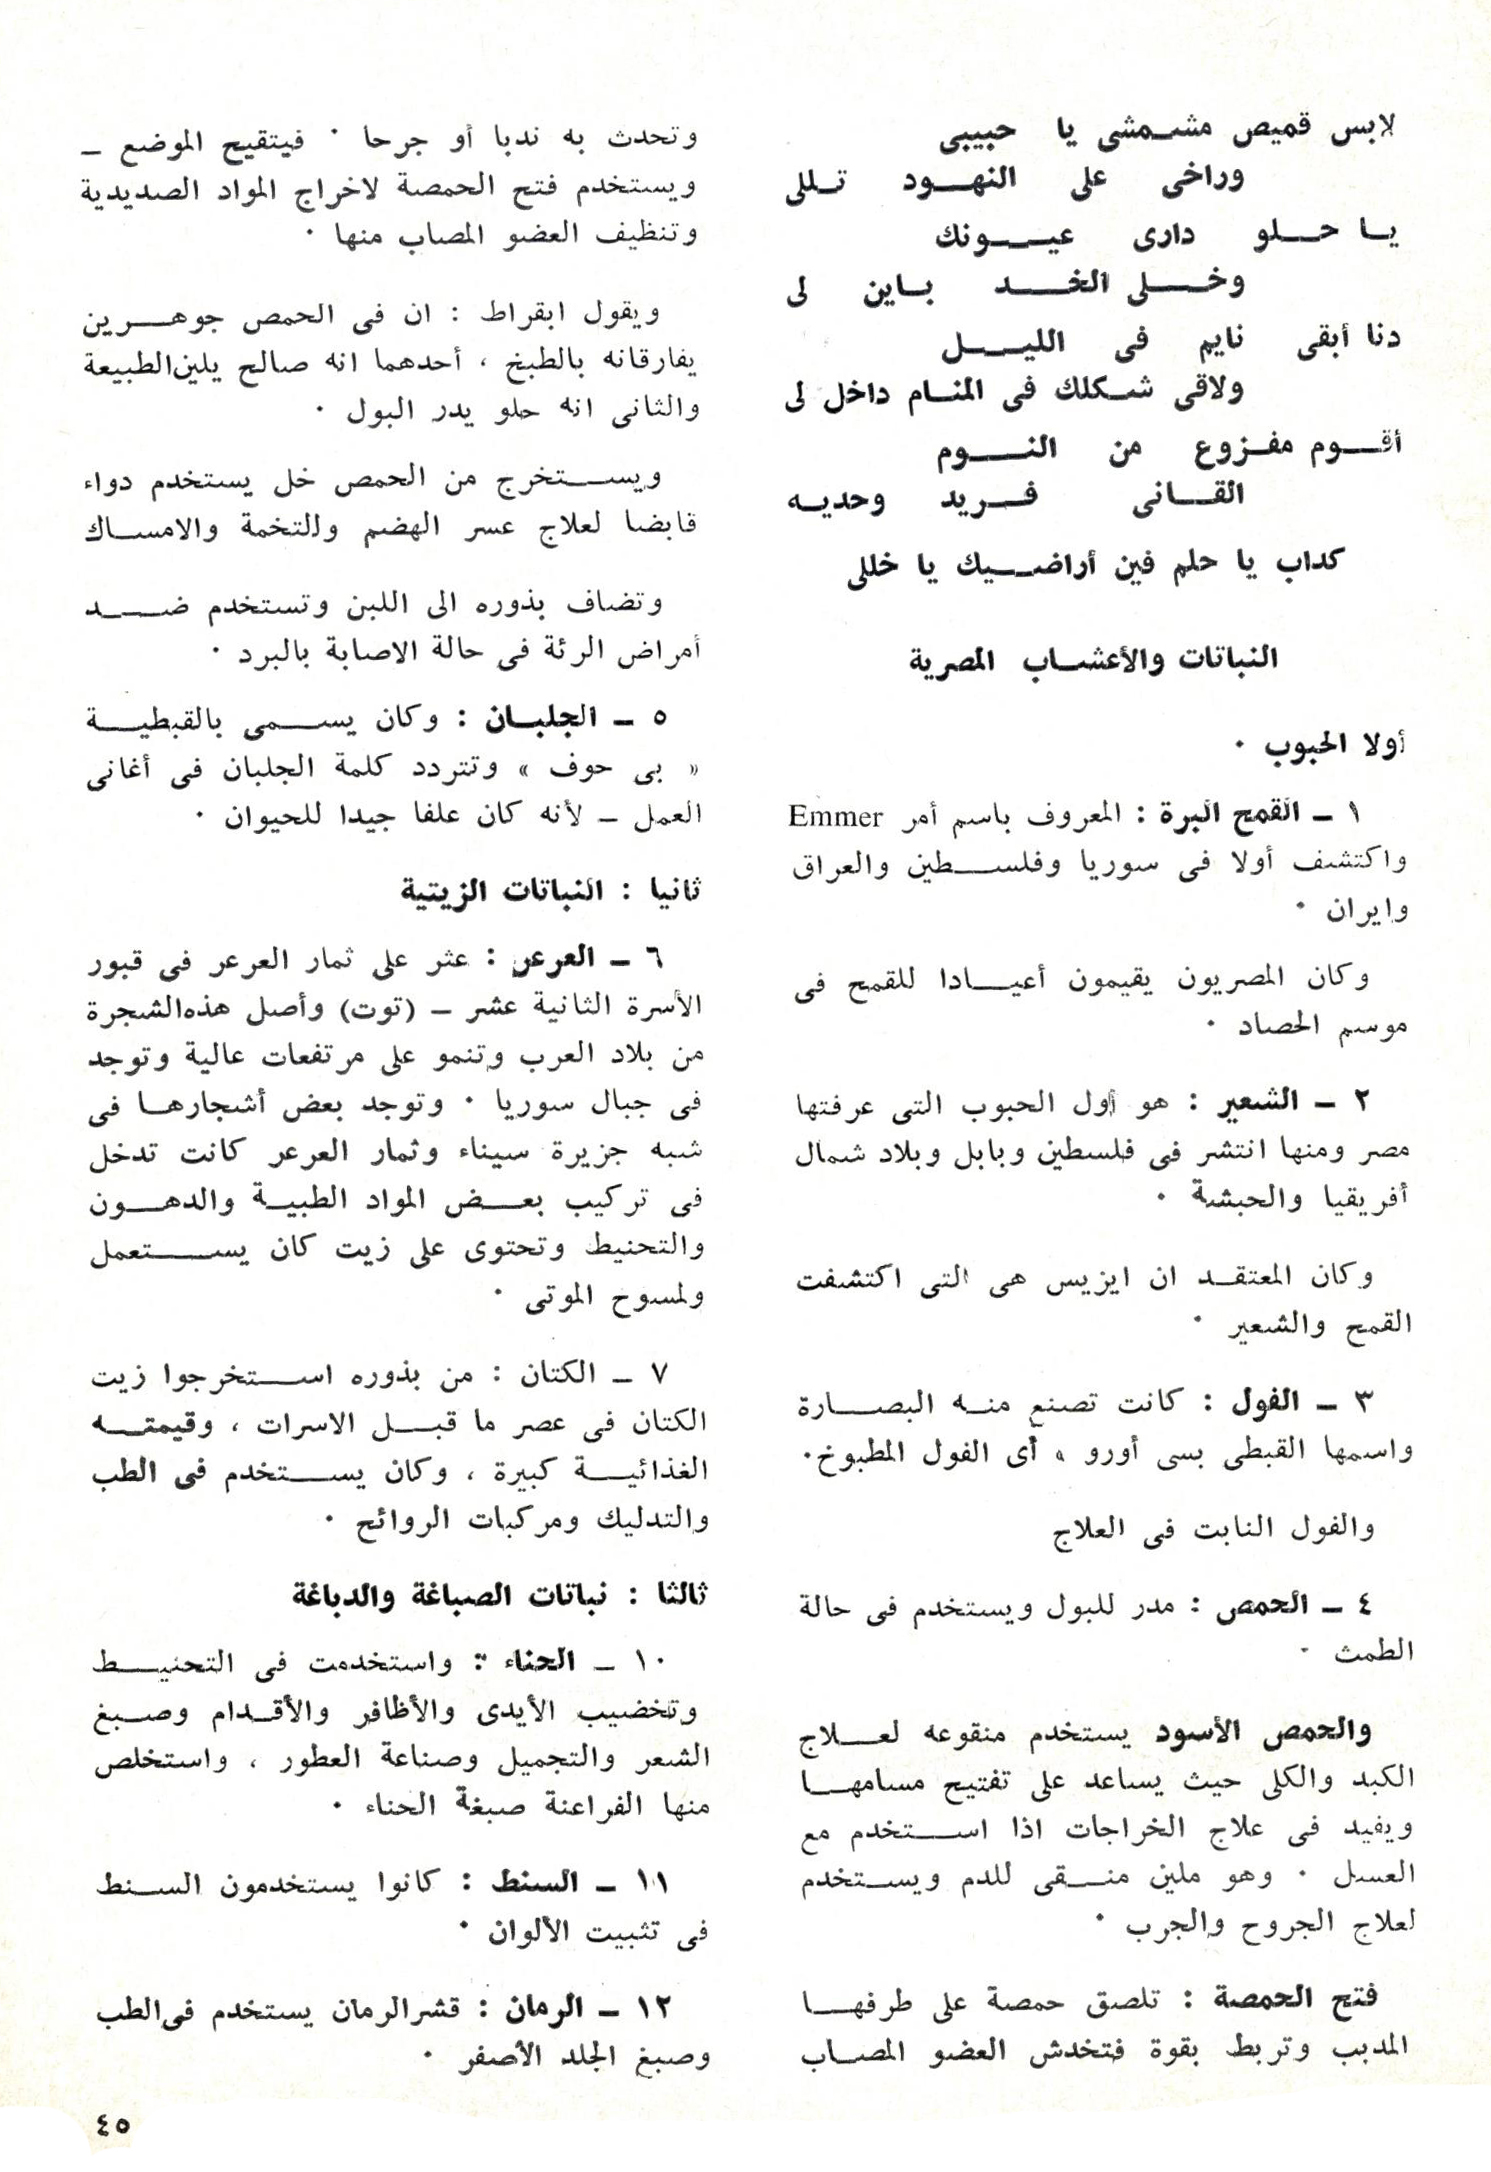 لابس قميص مشمشى يا حبيبى
وراخى على النهود تللى
يا حلو دارى عيونك
وخلى الخد باين لى
دنا أبقى نايم فى الليل
ولاقى شكلك فى المنام داخل لى
أقوم مفزوع من النوم
القانى فريد وحديه
كداب يا حلم فين أراضيك يا خللى
النباتات والأعشاب المصرية
أولا الحبوب ٠
١ ـ القمح البرة : المعروف باسم أمر Emmer
واكتشف أولا فى سوريا وفلسطين والعراق
وايران ٠
وكان المصريون يقيمون أعيادا للقمح فى
موسم الحصاد ٠
٢ ـ الشعير : هو أول الحبوب التى عرفتها
مصر ومنها انتشر فى فلسطين وبابل وبلاد شمال
أفريقيا والحبشة ٠
وكان المعتقد ان ايزيس هى التى اكتشفت
القمح والشعير ٠
٣ ـ الفول : كانت تصنع منه البصارة
واسمها القبطى بسى أورو ، أى الفول المطبوخ٠
والفول النابت فى العلاج
٤ ـ الحمص : مدر للبول ويستخدم فى حالة
الطمث ٠
والحمص الأسود يستخدم منقوعه لعلاج
الكبد والكلى حيث يساعد على تفتيح مسامها
ويفيد فى علاج الخراجات اذا استخدم مع
العسل ٠ وهو ملين منقى للدم ويستخدم
لعلاج الجروح والجرب ٠
فتح الحمصة : تلصق حمصة على طرفها
المدبب وتربط بقوة فتخدش العضو المصاب
وتحدث به ندبا أو جرحا ٠ فيتقيح الموضع ـ
ويستخدم فتح الحمصة لاخراج المواد الصديدية
وتنظيف العضو المصاب منها ٠
ويقول ابقراط : ان فى الحمص جوهرين
يفارقانه بالطبخ ، أحدهما انه صالح يلين الطبيعة
والثانى انه حلو يدر البول ٠
ويستخرج من الحمص خل يستخدم دواء
قابضا لعلاج عسر الهضم والتخمة والامساك
وتضاف بذوره الى اللبن وتستخدم ضد
أمراض الرئة فى حالة الاصابة بالبرد ٠
٥ ـ الجلبان : وكان يسمى بالقبطية
« بى حوف » وتتردد كلمة الجلبان فى أغانى
العمل ـ لأنه كان علفا جيدا للحيوان ٠
ثانيا : النباتات الزيتية
٦ ـ العرعر : عثر على ثمار العرعر فى قبور
الأسرة الثانية عشر ـ (توت) وأصل هذه الشجرة
من بلاد العرب وتنمو على مرتفعات عالية وتوجد
فى جبال سوريا ٠ وتوجد بعض أشجارها فى
شبه جزيرة سيناء وثمار العرعر كانت تدخل
فى تركيب بعض المواد الطبية والدهون
والتحنيط وتحتوى على زيت كان يستعمل
ولمسوح الموتى ٠
٧ ـ الكتان : من بذوره استخرجوا زيت
الكتان فى عصر ما قبل الاسرات ، وقيمته
الغذائية كبيرة ، وكان يستخدم فى الطب
والتدليك ومركبات الروائح ٠
ثالثا : نباتات الصباغة والدباغة
١٠ ـ الحناء : واستخدمت فى التحنيط
وتخضيب الأيدى والأظافر والأقدام وصبغ
الشعر والتجميل وصناعة العطور ، واستخلص
منها الفراعنة صبغة الحناء ٠
١١ ـ السنط : كانوا يستخدمون السنط
فى تثبيت الألوان ٠
١٢ ـ الرمان : قشر الرمان يستخدم فى الطب
وصبغ الجلد الأصفر ٠
٤٥